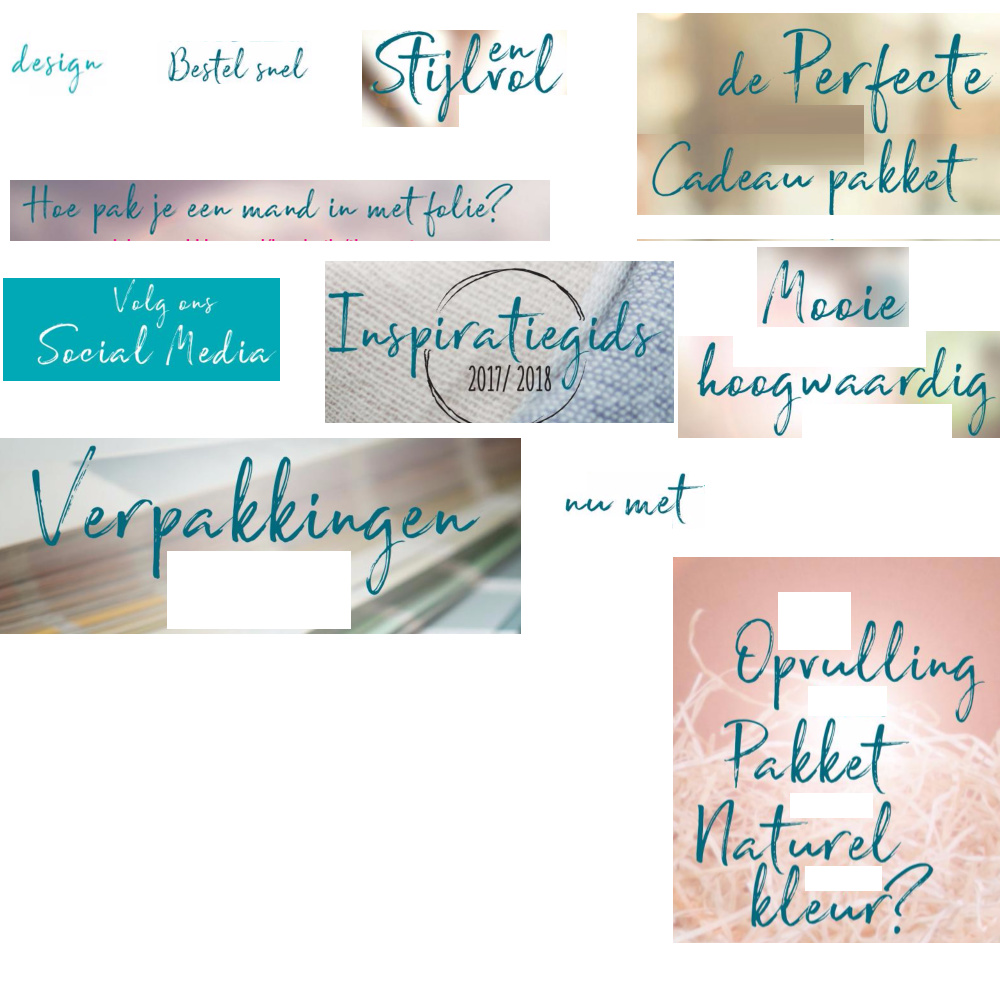 design
Bestel snel
en
Stijlvol
de Perfecte
Cadeau pakket
Hoe pak je een mand in met folie?
Volg ons
Social Media
Inspiratiegids
2017/ 2018
Mooie
hoogwaardig
Verpakkingen
nu met
Opvulling
Pakket
Naturel
kleur?